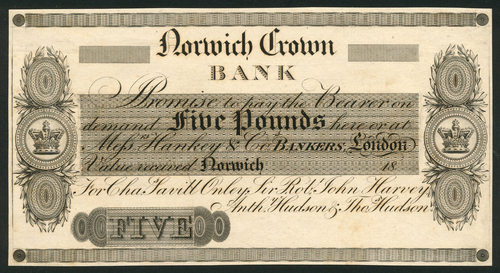 Norwich Crown
BANK
Promise to pay the Bearer on
demand Five Pounds here or at
Messrs Hankey & Co. BANKERS, London
Value received Norwich 18
For Cha.s Savill Onley, Sir Rob.t John Harvey,
Anth.y Hudson & Tho.s Hudson.
FIVE